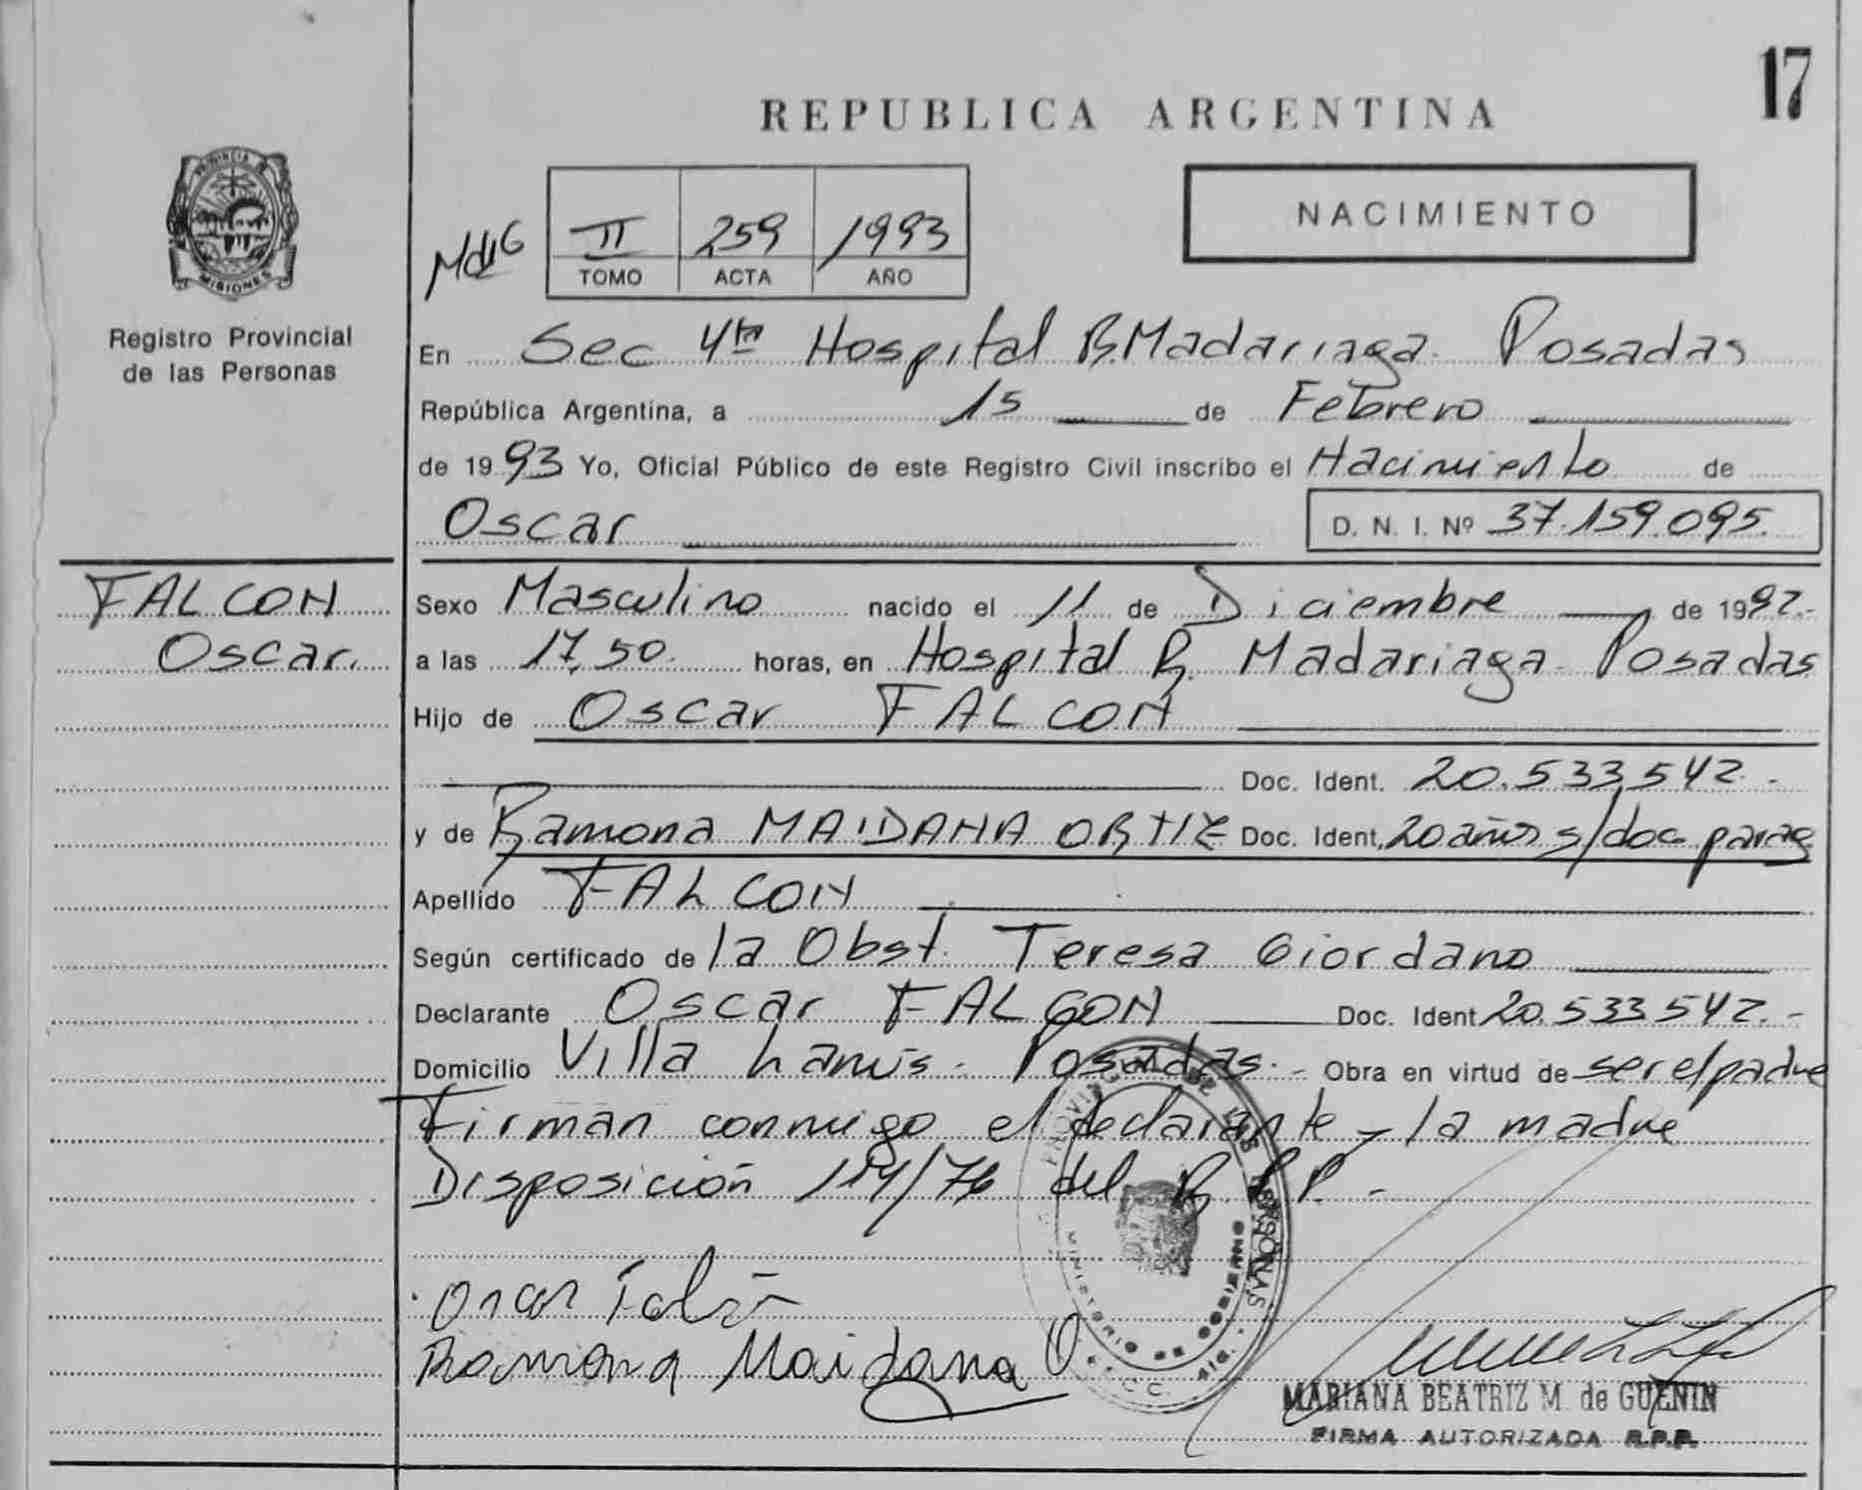 17
REPUBLICA ARGENTINA
PROVINCIA DE
MISIONES
Registro Provincial
de las Personas
NACIMIENTO
II 259 1993
TOMO ACTA AÑO
En Sec 4ta Hospital R. Madariaga. Posadas
República Argentina, a 15 de Febrero
de 1993 Yo, Oficial Público de este Registro Civil inscribo el Nacimiento de
Oscar D. N. I. Nº 37.159.095.
FALCON
Oscar.
Sexo Masculino nacido el 11 de Diciembre de 1992.-
a las 17,50. horas, en Hospital R. Madariaga Posadas
Hijo de Oscar FALCON
Doc. Ident. 20.533.542.-
y de Ramona MAIDANA ORTIZ Doc. Ident. 20 años s/doc parag
Apellido FALCON
Según certificado de la Obst. Teresa Giordano
Declarante Oscar FALCON Doc. Ident 20.533.542.-
Domicilio Villa Lanús - Posadas.- Obra en virtud de ser el padre
Firman conmigo el declarante y la madre
Disposición 114/76 del R.P.P.-
MINISTERIO DE GOBIERNO
Oscar Falcón
Ramona Maidana O
MARIANA BEATRIZ M. de GUENIN
FIRMA AUTORIZADA R.P.P.